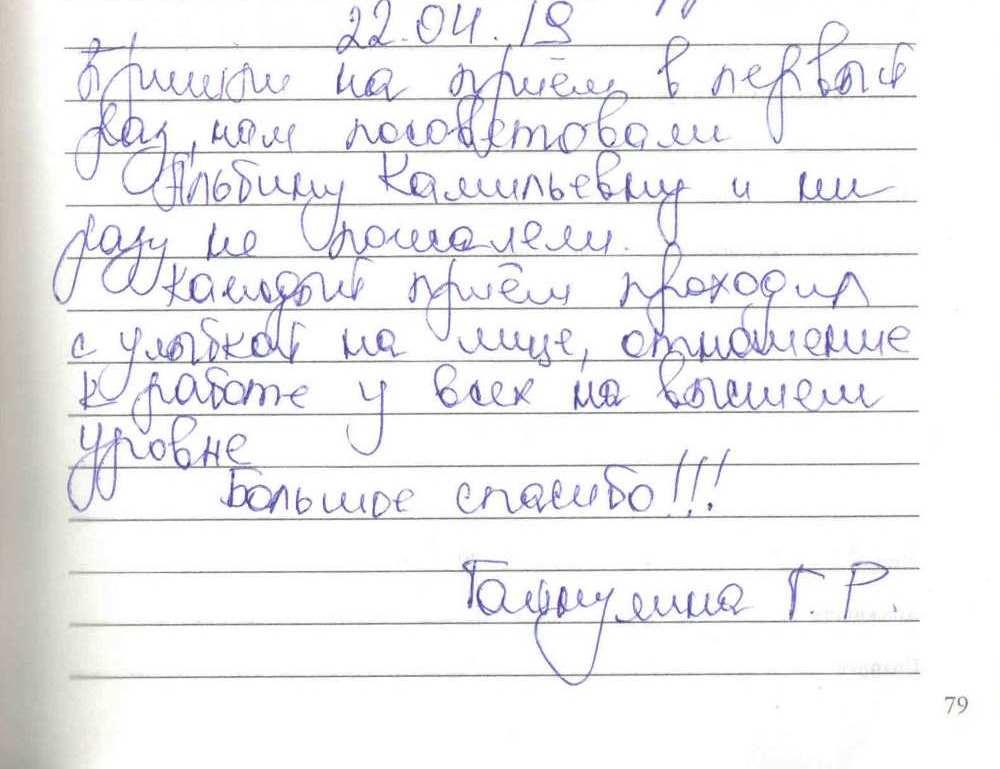 22.04.19
Пришли на приём в первый
раз, нам посоветовали
Альбину Камильевну и ни
разу не пожалели.
Каждый приём проходил
с улыбкой на лице, отношение
к работе у всех на высшем
уровне
Большое спасибо!!!
Г. Р.
79